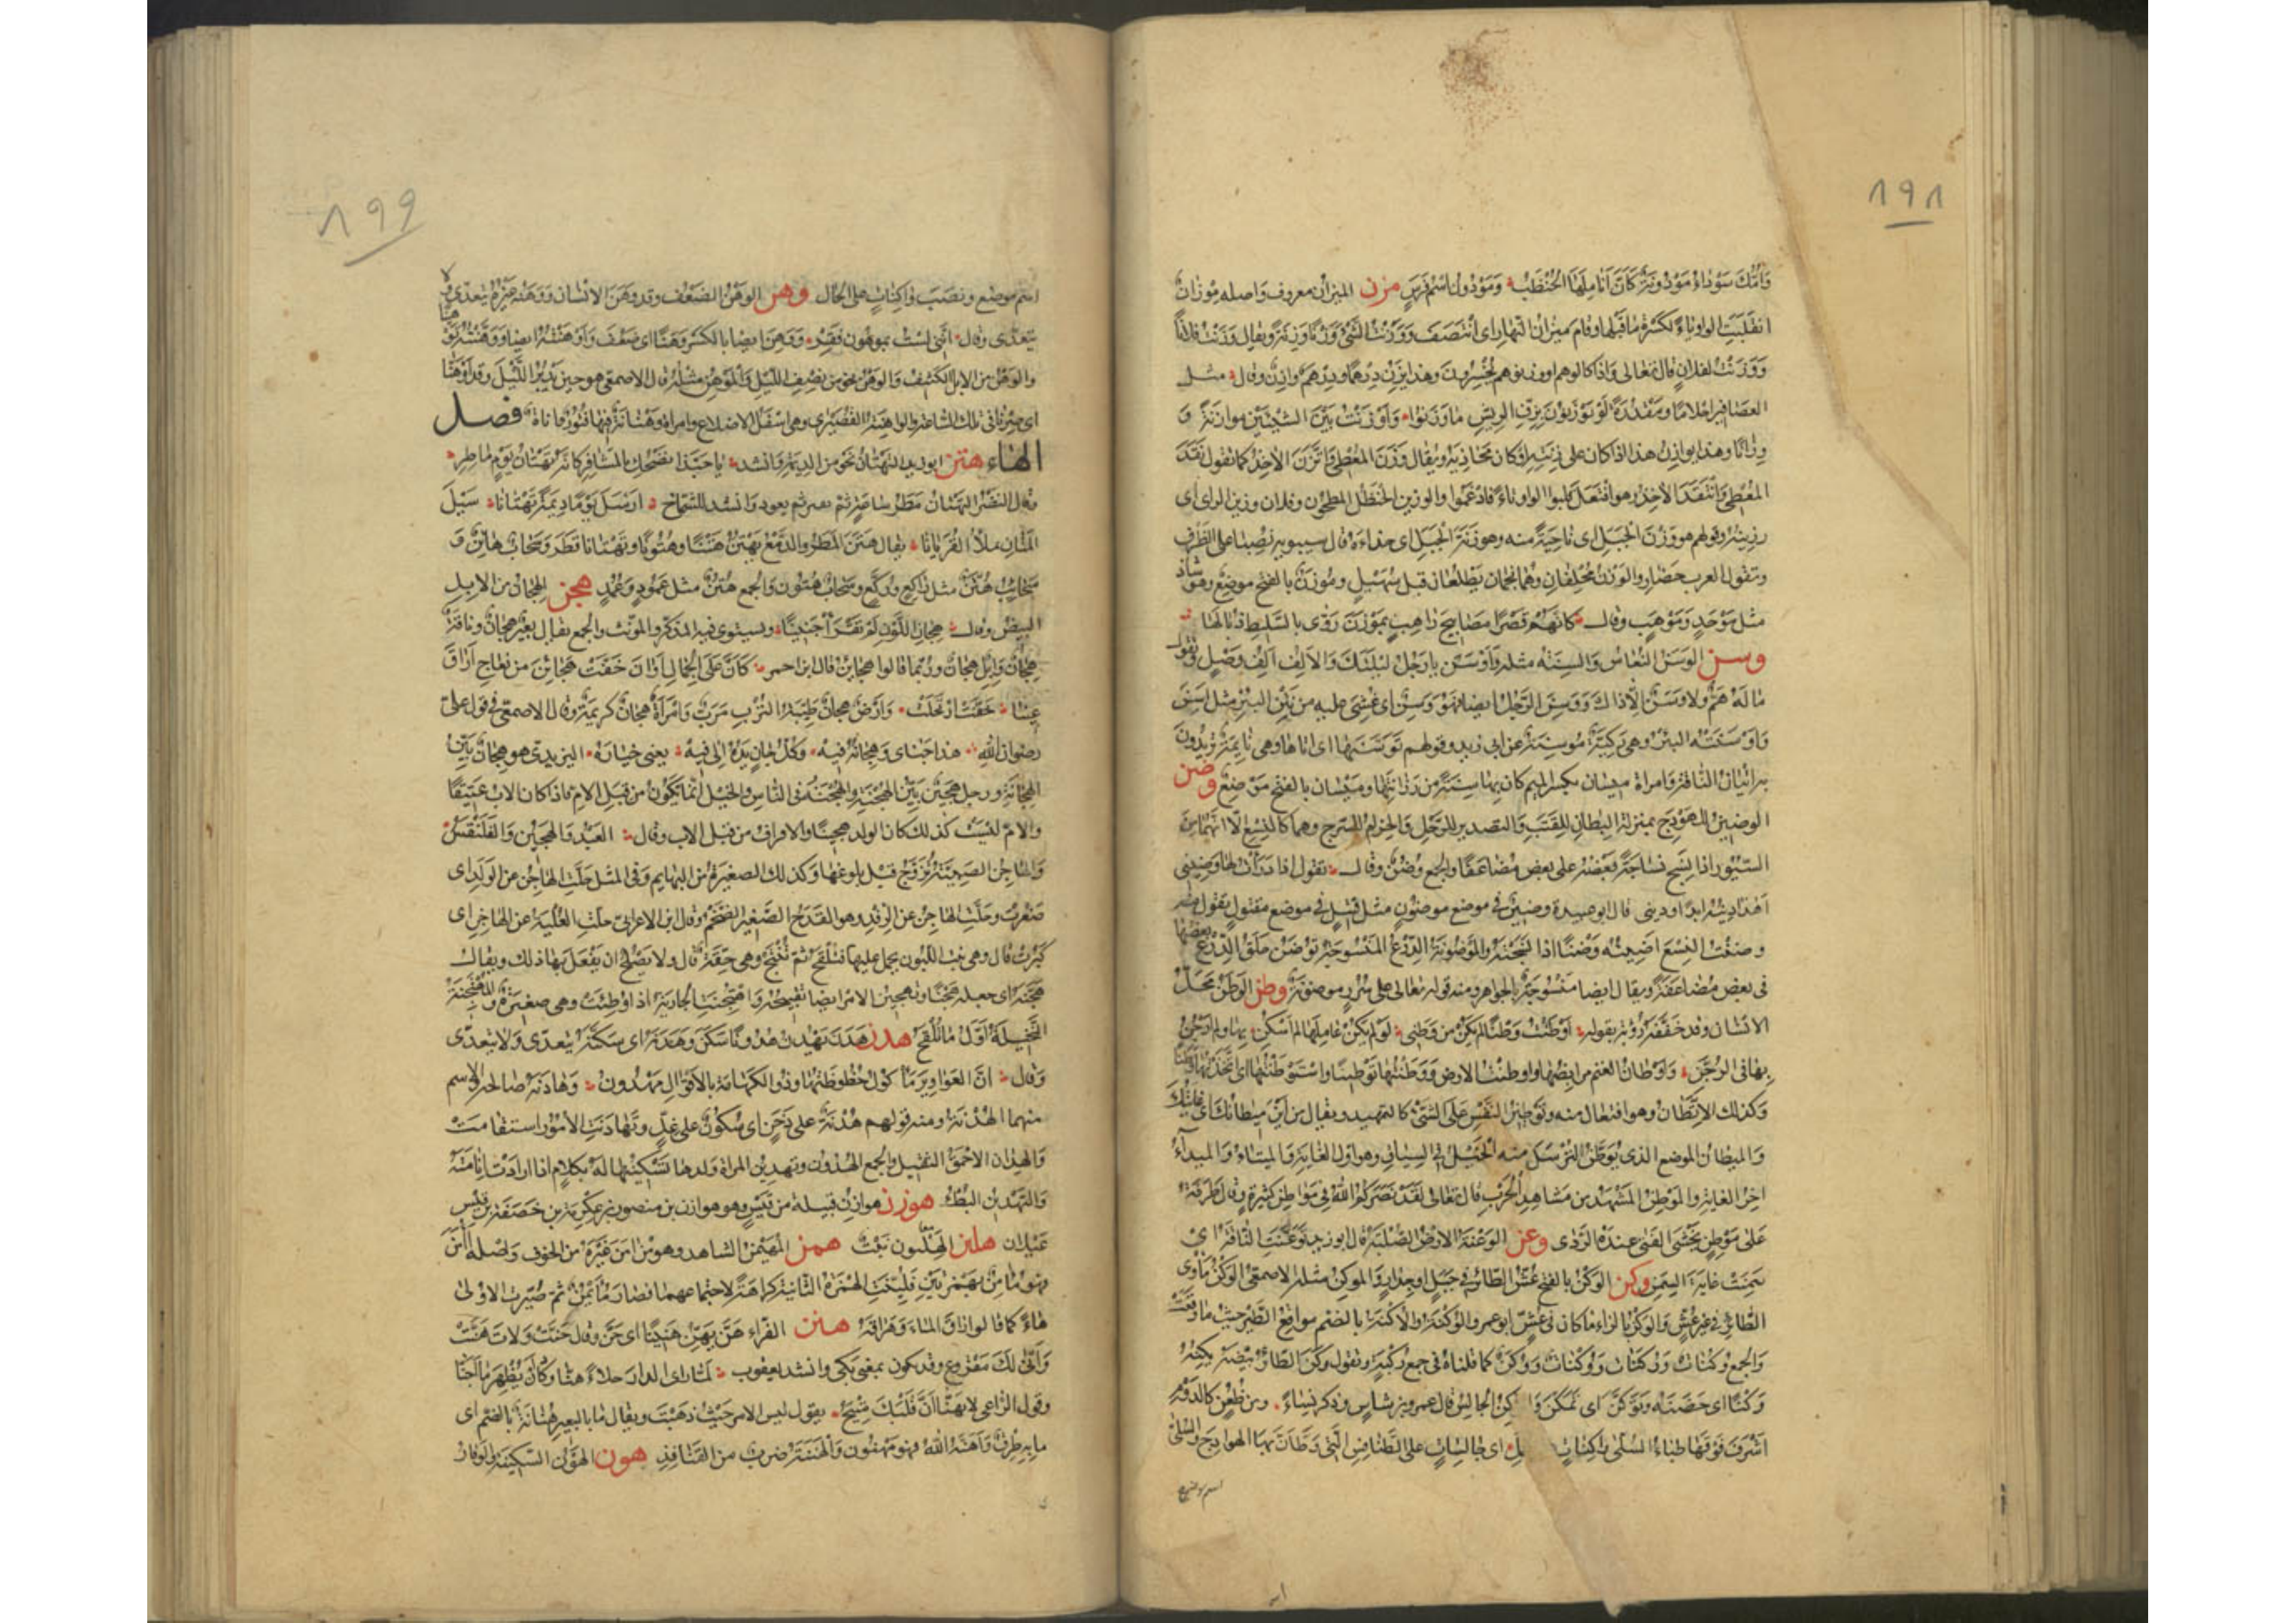 ٨٩٨
وَأُمُّكَ سَوْدَاءُ مَوْدُونَةٌ كَأَنَّ أَنَامِلَهَا الحُنْظَبُ وَمَوْدُونٌ اسْمُ فَرَسٍ مزن الميزان معروف واصله مِوْزَانٌ
انقلبت الواو ياءً لكسرة ما قبلها وقام ميزان النهار اى انتصف ووزنت الشئ وَزْنًا وزِنَةً ويقال وزنت فلانًا
ووزنت لفلان قال تعالى واذا كالوهم او وزنوهم يُخْسِرون وهذا يزن درهمًا ودرهمٌ وازنٌ وقال مثل
العصافير احلامًا ومقدرةً لو يوزنون بزفّ الريش ما وزنوا وَاوزنت بين الشيئين موازنةً و
وِزَانًا وهذا يوازن هذا اذا كان على زنته او كان محاذيه ويقال وزن المعطى واتّزن الآخذ كما تقول نقد
المعطى وانتقد الآخذ وهو افتعل قلبوا الواو تاءً فادغموا والوزين الحنظل المطحون وفلان وزين الراى اى
رزينه وقولهم هو وَزْنَ الجبل اى ناحيةً منه وهو زِنَةَ الجبل اى حذاءه قال سيبويه نصبا على الظرف
وتقول العرب حَضَارِ والوزن محلفان وهما نجمان يطلعان قبل سهيل ومَوْزَنٌ بالفتح موضع وهو شاذ
مثل مَوْحَدٍ ومَوْهَبٍ وقال كانهم قصرًا مصابيح راهبٍ بموزن روّى بالسليط ذبالها
وسن الوسن النعاس والسنة مثله وَاوْسَن يا رجل ليلتك والالف الف وصل وتقول
ما له همّ ولا وسن الا ذاك ووَسِنَ الرجل ايضا فهو وَسِنٌ اى غشى عليه من نتن البئر مثل اسن
واوسنته البئر وهى ركية موسنة عن ابى زيد وقولهم توسنها اى اتاها وهى نايمة يريدون
به اتيان الناقة وامراة ميسان بكسر الميم كان بها سنة من رزانتها وميسان بالفتح موضع وضن
الوضين للهودج بمنزلة البطان للقتب والتصدير للرحل والحزام للسرج وهما كالنسع الا انهما من
السيور اذا نسج نساجةً بعضه على بعض مضاعفًا والجمع وُضُنٌ وقال تقول اذا درأت لها وضينى
اهذا دينه ابدًا ودينى قال ابو عبيدة وضين فى موضع موضون مثل قتيل فى موضع مقتول تقول منه
وضنت النسع اضينه وضنًا اذا نسجته والموضونة الدرع المنسوجة توضن حلق الدرع بعضها
فى بعض مضاعفة ويقال ايضا منسوجة بالجواهر ومنه قوله تعالى على سرر موضونة وطن الوطن محل
الانسان وقد خففه رؤبة بقوله اوطنت وطنًا لم يكن من وطنى لو لم يكن عاملها لم اسكن بها ولم ارجن
بها فى الرجن واوطان الغنم مرابضها واوطنت الارض ووطنتها توطينًا واستوطنتها اى اتخذتها وطنًا
وكذلك الاتّطان وهو افتعال منه وتوطين النفس على الشئ كالتمهيد ويقال من اين ميطانك اى غايتك
والميطان الموضع الذى يُوَطّن لترسل منه الخيل فى السباق وهو اول الغاية والميتاء والميداء
اخر الغاية والموطن المشهد من مشاهد الحرب قال تعالى لقد نصركم الله فى مواطن كثيرة وقال طرفة
على موطن يخشى الفتى عنده الردى وعن الوعنة الارض الصلبة قال ابو زيد توعنت الناقة اى
سمنت غاية السمن وكن الوكن بالفتح عشّ الطائر فى جبل او جدار والموكن مثله الاصمعى الوكن ماوى
الطائر فى غير عشّ والوكر بالراء ما كان فى عشّ ابو عمرو الوكنة والأكنة بالضم مواقع الطير حيث ما وقعت
والجمع وُكُنات ووُكَنات ووُكْنات ووُكَن كما قلناه فى جمع ركبة وتقول وكن الطائر بيضه يكنه
وكنًا اى حضنه وتوكّن اى تمكن وا كن الجالس قال عمرو بن شاس وذكر نساء ومن ظعن كالدوم
اشرف فوقها ظباء السلى واكنات اى جالسات على الطنافس التى وطأن بها الهوادج والسلى
اسم موضع
٨٩٩
اسم موضع ونصب واكنات على الحال وهن الوهن الضعف وقد وهن الانسان ووهنه غيره يتعدى ولا
يتعدى وقال اننى لست بموهون فقر ووهن ايضا بالكسر وهنًا اى ضعف واوهنته ايضا ووهنته توهينا
والوهن من الابل الكثيف والوهن نحو من نصف الليل والموهن مثله قال الاصمعى هو حين يدبر الليل وقد اوهنا
اى صرنا فى تلك الساعة والواهنة القصيرى وهى اسفل الاضلاع وامراة وهنانة فيها فتور واناة فصل
الهاء هتن ابو زيد التهتان نحو من الديمة وانشد يا حبذا نضحك بالمشافر كانه تهتان يوم ماطر
وقال النضر التهتان مطر ساعة ثم يفتر ثم يعود وانشد للشماخ ارسل يومًا ديمة تهتانا سيل
المتان يملأ القريانا يقال هتن المطر والدمع يهتن هتنًا وهتونًا وتهتانا قطر وسحاب هاتن و
سحائب هُتّن مثل راكع وركّع وسحاب هتون والجمع هُتُن مثل عمود وعمد هجن الهجان من الابل
البيض وقال هجان اللون لم تقرأ جنينا ويستوى فيه المذكر والمونث والجمع يقال بعير هجان وناقة
هجان وابل هجان وربما قالوا هجاين قال ابن احمر كان على الجمال اوان خفت هجائن من نعاج اراق
عينا وارض هجان طيبة الترب مرب وامراة هجان كريمة وقال الاصمعى فى قول على
رضوان الله هذا جناى وهجانه فيه وكل جان يده الى فيه يعنى خياره اليزيدى هو هجان بيّن
الهجانة ورجل هجين بيّن الهجنة والهجنة فى الناس والخيل انما تكون من قبل الام فاذا كان الاب عتيقًا
والام ليست كذلك كان الولد هجينًا والاقراف من قبل الاب وقال العبد والهجين والفلنقس
والهاجن الصبية تزوّج قبل بلوغها وكذلك الصغيرة من البهايم وفى المثل جلّت الهاجن عن الولد اى
صغرت وجلّت الهاجن عن الرفد وهو القدح الضخم وقال ابن الاعرابى جلّت العلبة عن الهاجن اى
كبرت قال وهى بنت اللبون يحمل عليها فتلقح ثم تنتج وهى حقة قال ولا يصلح ان يفعل بها ذلك ويقال
هجّنه اى جعله هجينًا وتهجين الامر ايضا تقبيحه واهتجنت الجارية اذا وطئت وهى صغيرة والمهتجنة
النخيلة اول ما تلقح هدن هدن يهدن هدونًا سكن وهدنه اى سكّنه يتعدى ولا يتعدى
وقال ان العواوير ماكول حظوظتها وذو الكهامة بالاقوال مهدون وهادنه صالحه والاسم
منهما الهدنة ومنه قولهم هدنة على دخن اى سكون على غلّ وتهادنت الامور استقامت
والهدان الاحمق الثقيل والجمع الهدون وتهدين المراة ولدها تسكينها له بكلام اذا ارادت انامته
والتهدين البطء هوزن هوازن قبيلة من قيس وهو هوازن بن منصور بن عكرمة بن خصفة بن قيس
عيلان هلن الهليون نبت همن المهيمن الشاهد وهو من آمن غيره من الخوف واصله أأمن
فهو مأامن بهمزتين قلبت الهمزة الثانية كراهة لاجتماعهما فصار مأيمن ثم صيرت الاولى
هاء كما قالوا اراق الماء وهراقه هنن الفراء هنّ يهنّ هنينًا اى حنّ وقال حنّت ولات هنّت
وانّى لك مقروع وقد يكون بمعنى بكى وانشد يعقوب لما راى الدار خلاءً هنّا وكاد يظهر ما اجنّا
وقول الراعى لا يهنّا ان قلبك متيح يقول ليس الامر حيث ذهبت ويقال ما بالبعير هنانة بالضم اى
ما به طرق واهنّه الله فهو مهنون والهنّنة ضرب من القنافذ هون الهون السكينة والوقار